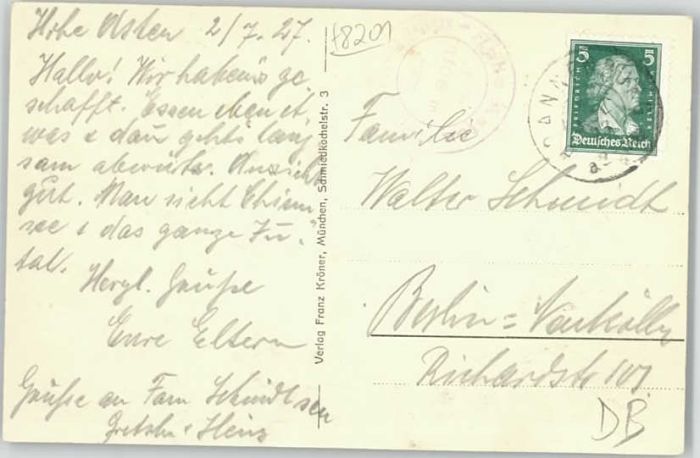 Hohe Asten 2/7.27.
Hallo! Wir haben's ge-
schafft. Essen eben et-
was & dann gehts lang
sam abwärts. Aussicht
gut. Man sieht Chiem
see & das ganze In-
tal.
Herzl. Grüße
Eure Eltern
Grüße an Fam Schmidt sen
Gretchen & Heinz
Verlag Franz Kröner, München, Schmiedkochelstr. 3
f8201
5 5
FRIEDRICH SCHILLER
Deutsches Reich
Familie
Walter Schmidt
Berlin=Neukölln
Richardstr 101
DB